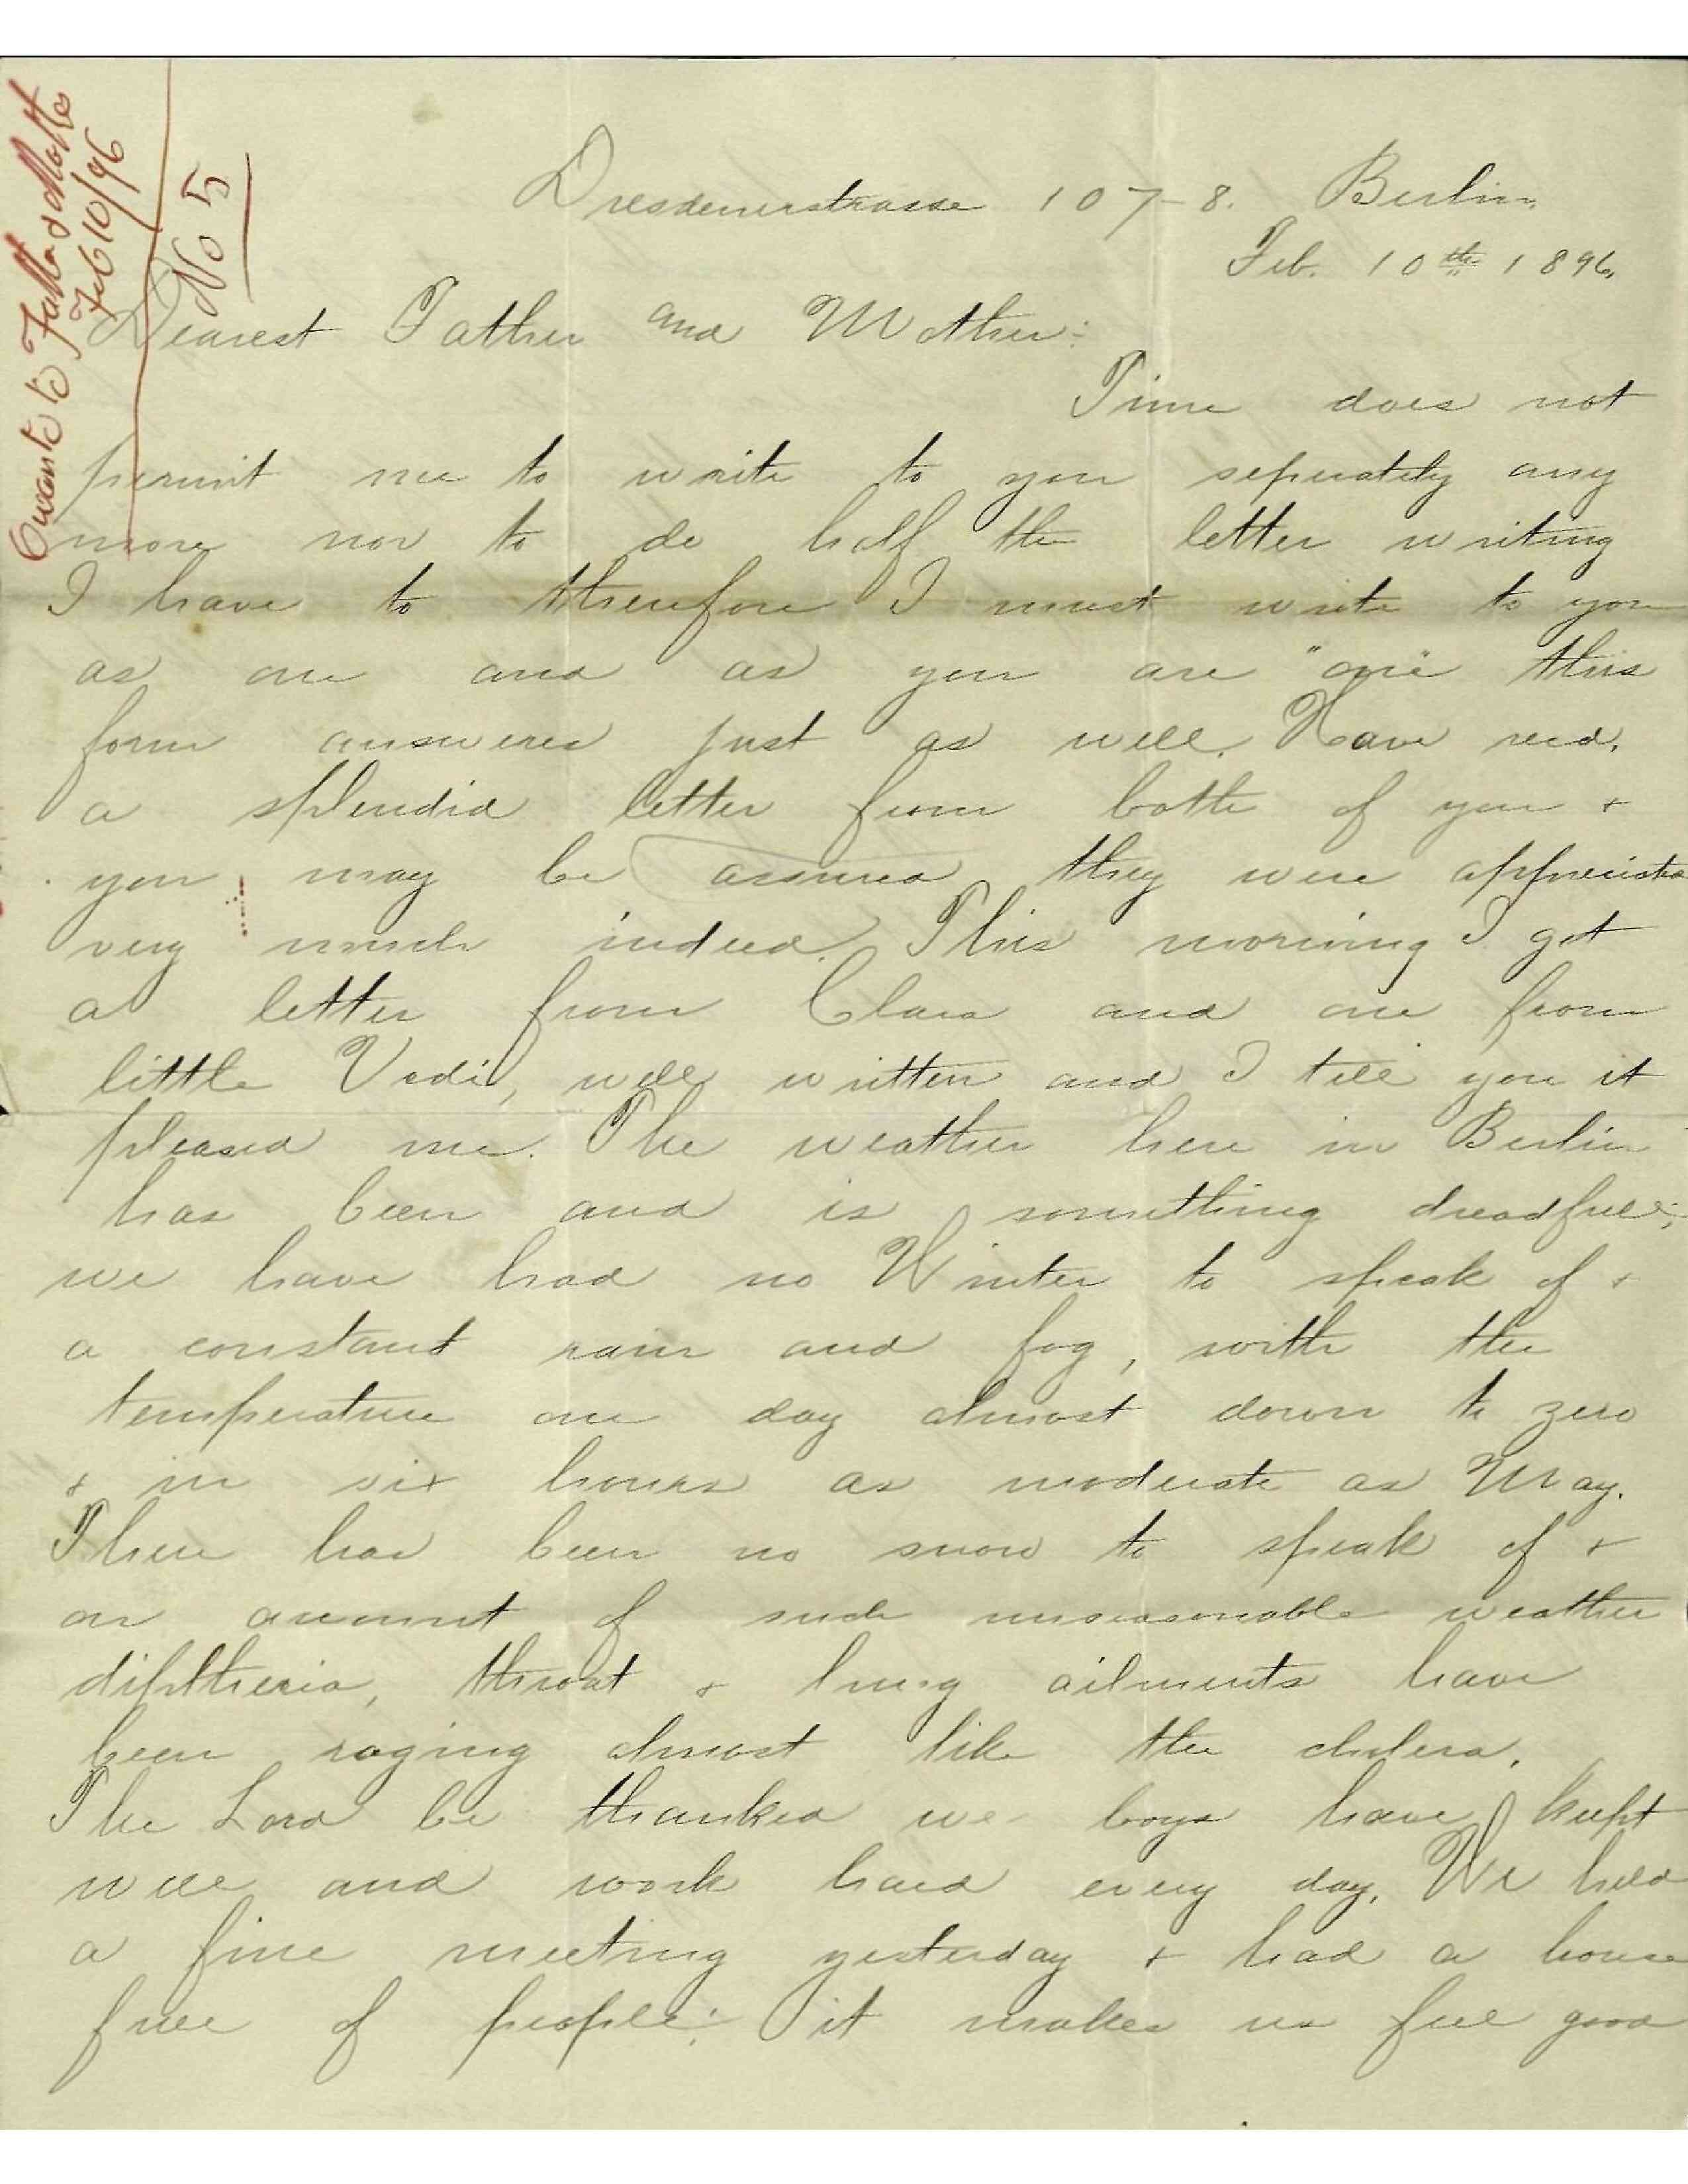 to Father & Mother
Feb 10/96
No 5
Dresdenerstrasse 107-8. Berlin.
Feb. 10th 1896.
Dearest Father and Mother:
Time does not
permit me to write to you seperately any
more nor to do half the letter writing
I have to therefore I must write to you
as one and as you are "one" this
form answeres just as well. Have recd.
a splendid letter from both of you +
you may be assured they were appreciated
very much indeed. This morning I got
a letter from Clara and one from
little Vadi, well written and I tell you it
pleased me. The weather here in Berlin
has been and is something dreadful;
we have had no Winter to speak of +
a constant rain and fog, with the
temperature one day almost down to zero
+ in six hours as moderate as May.
There has been no snow to speak of +
on account of such unseasonable weather
diphtheria, throat + lung ailments have
been raging almost like the cholera.
The Lord be thanked we boys have kept
well and work hard every day. We held
a fine meeting yesterday + had a house
full of people; it makes us feel good